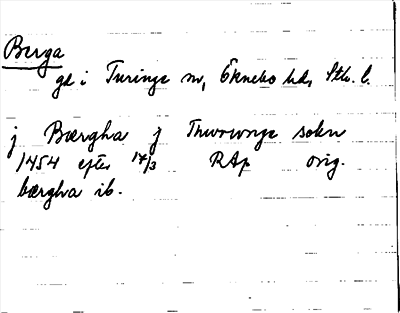 Berga
gd i Turinge sn, Öknebo hd, Sthlm. l.
j Bærgha j Thworwnge sokn
1454 efter 14/3 RAp orig.
bærgha ib.